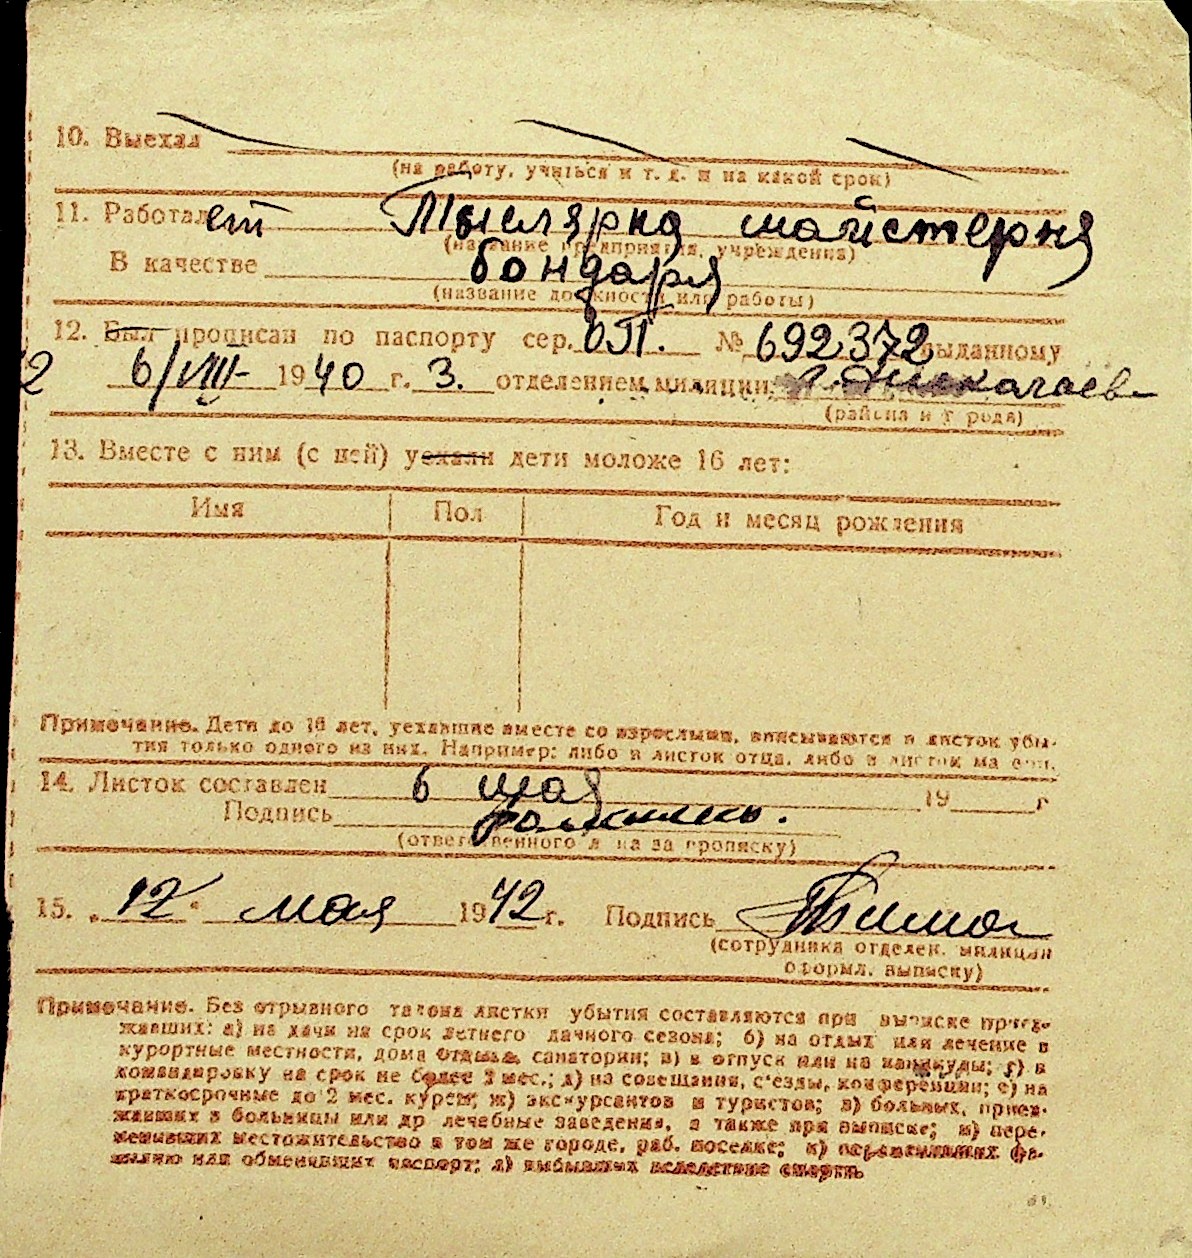 10. Выехал
(на работу, учиться и т. д. и на какой срок)
11. Работает Тыслярна майстерня
(название предприятия, учреждения)
В качестве бондаря
(название должности или работы)
12. Был прописан по паспорту сер. № 692372 выданному
6/VIII- 1940 г. 3. отделением милиции г. Николаев
(района и города)
13. Вместе с ним (с ней) уехали дети моложе 16 лет:
Имя Пол Год и месяц рождения
Примечание. Дети до 16 лет, уехавшие вместе со взрослыми, вписываются в листок убы-
тия только одного из них. Например: либо в листок отца, либо в листок матери.
14. Листок составлен 6 мая 19 г
Подпись
(ответственного лица за прописку)
15. „12“ мая 1942 г. Подпись
(сотрудника отделен. милиции
оформл. выписку)
Примечание. Без отрывного талона листки убытия составляются при выписке приез-
жавших: а) на дачи на срок летнего дачного сезона; б) на отдых или лечение в
курортные местности, дома отдыха, санатории; в) в отпуск или на каникулы; г) в
командировку на срок не более 2 мес.; д) на совещания, с'езды, конференции; е) на
краткосрочные до 2 мес. курсы; ж) экскурсантов и туристов; з) больных, приез-
жавших в больницы или др лечебные заведения, а также при выписке; и) пере-
менивших местожительство в том же городе, раб. поселке; к) переменивших фа-
милию или обменивших паспорт; л) выбывших вследствие смерти